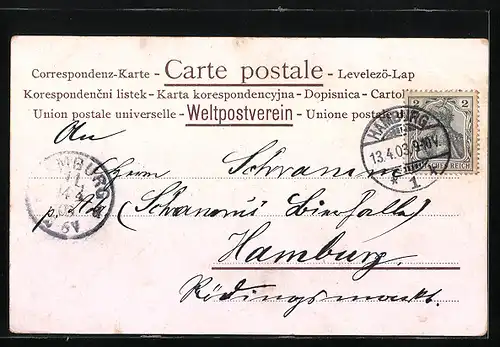 Correspondenz-Karte - Carte postale - Levelező-Lap
Korespondenční listek - Karta korespondencyjna - Dopisnica - Cartol
Union postale universelle - Weltpostverein - Unione postale
2 2
DEUTSCHES REICH
HAMBURG
13.4.03.9-10V.
* 1 *
An
Herrn Schramm
HAMBURG
(Schramm's Bierhalle)
Hamburg.
Rödingsmarkt.